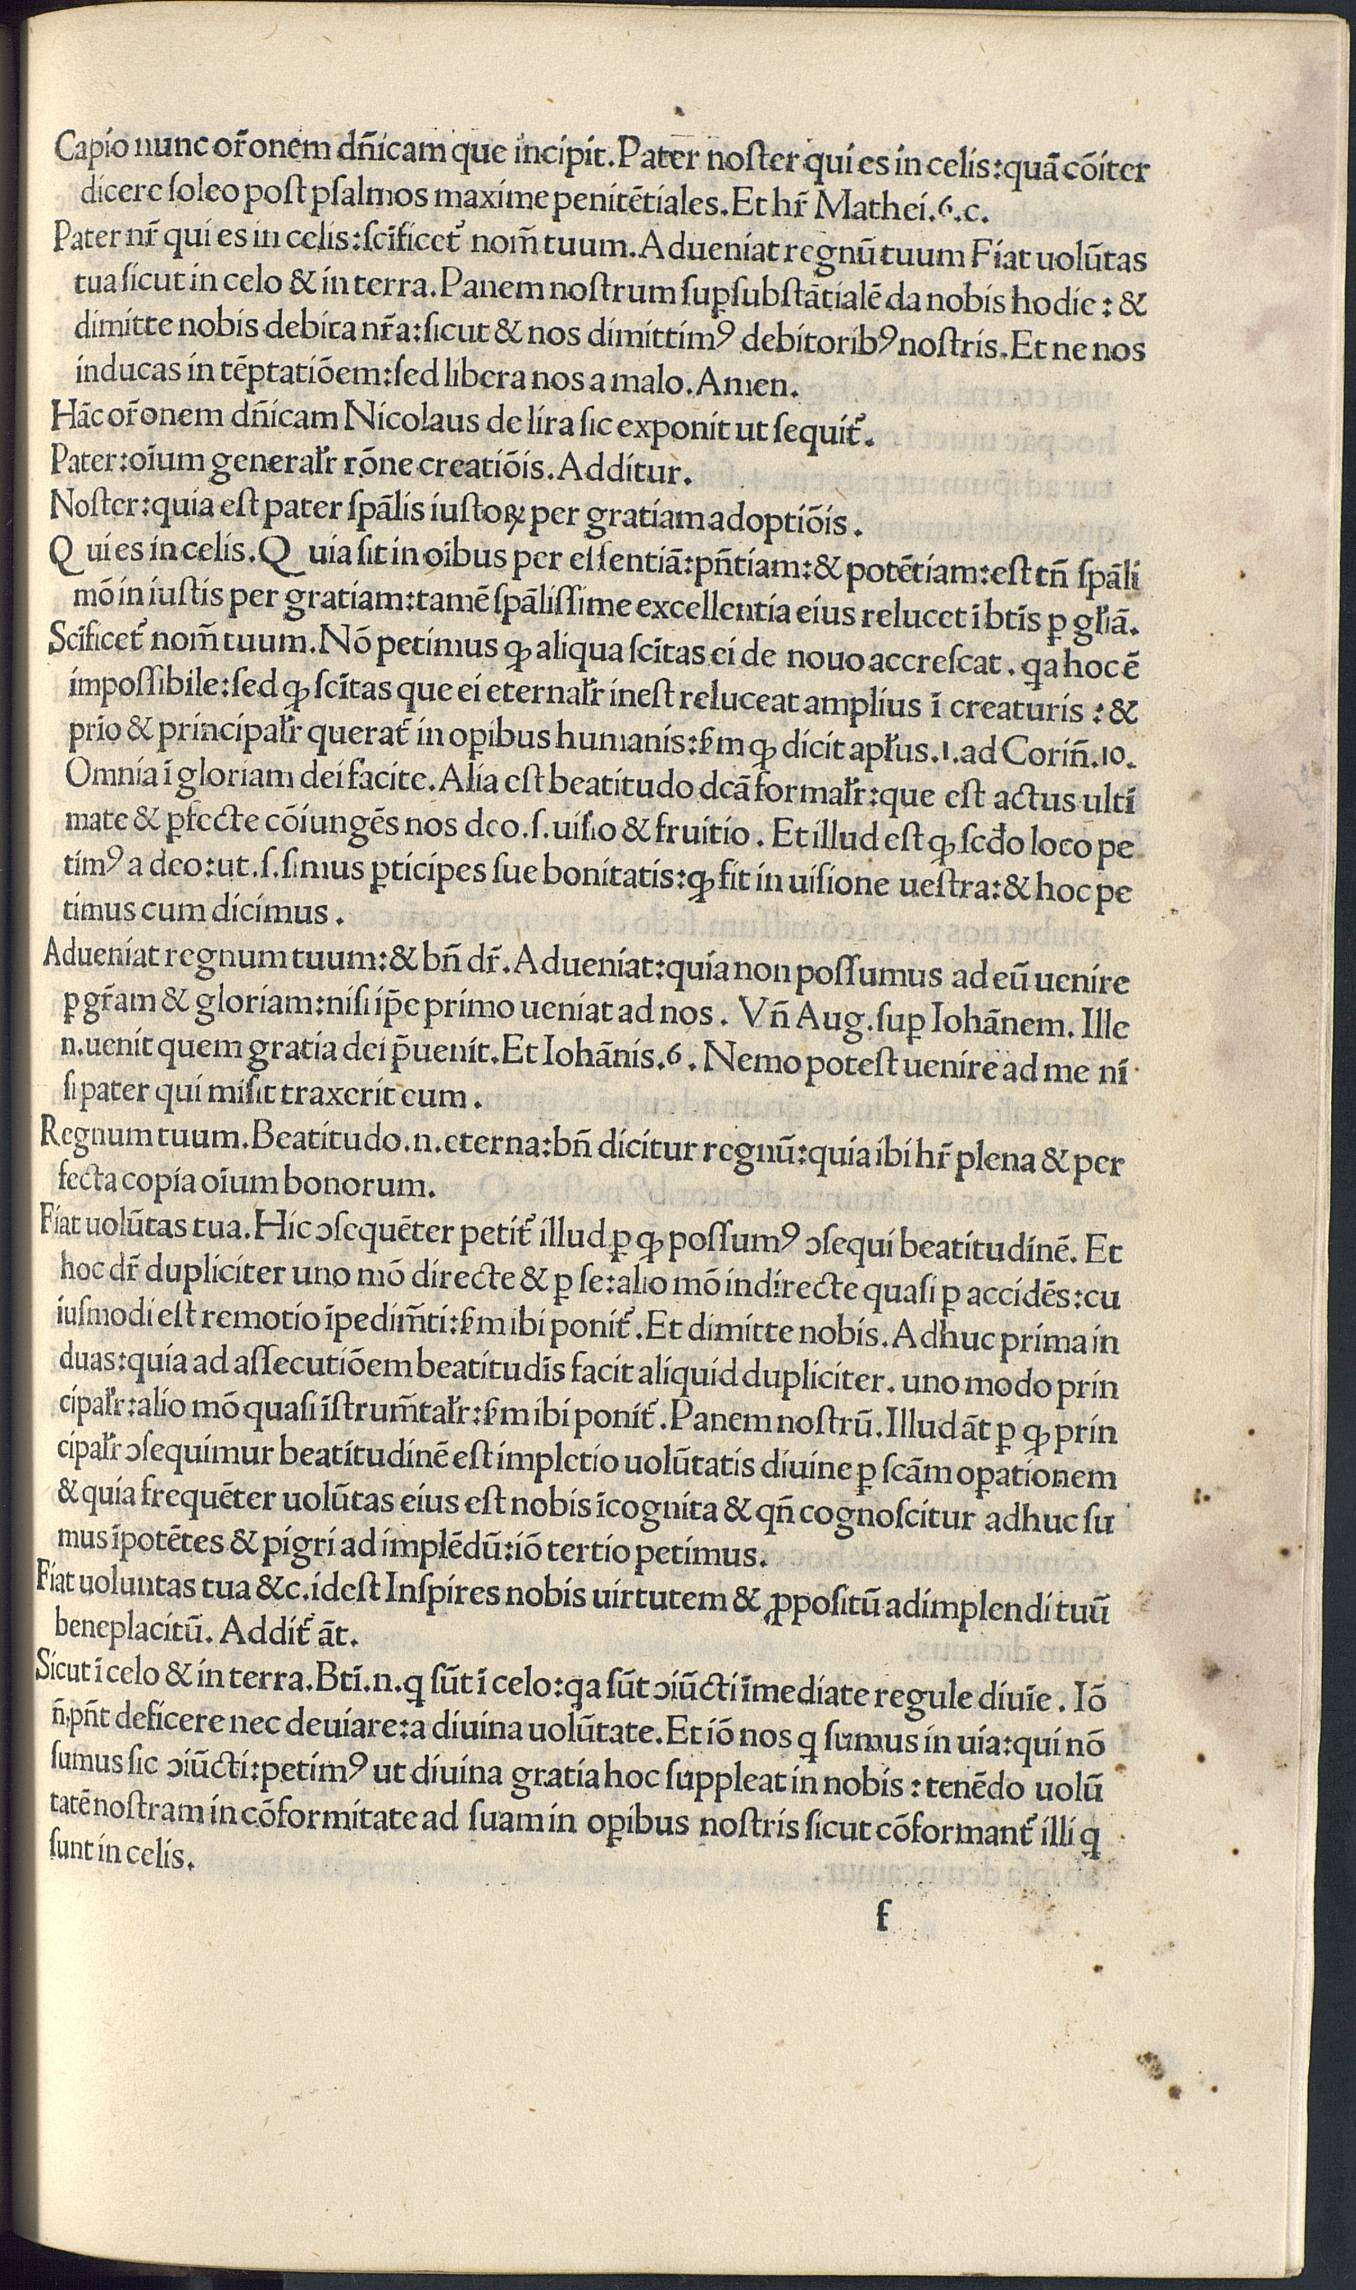 Capio nunc or̃onem dñicam que incipit. Pater noſter qui es in celis:quã cõiter
dicere ſoleo poſt pſalmos maxime penitẽtiales. Et hr̃ Mathei.6.c.
Pater nr̃ qui es in celis:ſcĩficet᷑ nom̃ tuum. Adueniat regnũ tuum Fiat uolũtas
tua ſicut in celo & in terra. Panem noſtrum ſuꝑſubſtãtialẽ da nobis hodie: &
dimitte nobis debita nr̃a:ſicut & nos dimittimꝰ debitoribꝰ noſtris. Et ne nos
inducas in tẽptatiõem:ſed libera nos a malo. Amen.
Hãc or̃onem dñicam Nicolaus de lira ſic exponit ut ſequit᷑.
Pater:oĩum generalr̃ rõne creatiõis. Additur.
Noſter:quia eſt pater ſpãlis iuſtoꝝ per gratiam adoptiõis.
Qui es in celis. Quia ſit in oĩbus per eſſentiã:pñtiam:& potẽtiam:eſt tñ ſpãli
mõ in iuſtis per gratiam:tamẽ ſpãliſſime excellentia eius relucet ĩ btĩs ꝑ gl̃iã.
Scĩficet᷑ nom̃ tuum. Nõ petimus ꝙ aliqua ſcĩtas ei de nouo accreſcat. qa hoc ẽ
impoſſibile:ſed ꝙ ſcĩtas que ei eternalr̃ ineſt reluceat amplius ĩ creaturis : &
prĩo & principalr̃ querat᷑ in oꝑibus humanis:ẜm ꝙ dicit apl̃us.1.ad Coriñ.10.
Omnia ĩ gloriam dei facite. Alia eſt beatitudo dcã formalr̃:que eſt actus ultĩ
mate & ꝑfecte cõiungẽs nos deo.ſ.uiſio & fruitio. Et illud eſt ꝙ ſcd̃o loco pe
timꝰ a deo:ut.ſ.ſimus ꝑticipes ſue bonitatis:ꝙ fit in uiſione ueſtra:& hoc pe
timus cum dicimus.
Adueniat regnum tuum:& bñ dr̃. Adueniat:quia non poſſumus ad eũ uenire
ꝑ gr̃am & gloriam:niſi ip̃e primo ueniat ad nos. Vñ Aug.ſuꝑ Iohãnem. Ille
n.uenit quem gratia dei p̃uenit. Et Iohãnis.6. Nemo poteſt uenire ad me nĩ
ſi pater qui miſit traxerit eum.
Regnum tuum. Beatitudo.n.eterna:bñ dicitur regnũ:quia ibi hr̃ plena & per
fecta copia oĩum bonorum.
Fiat uolũtas tua. Hic ↄſequẽter petit᷑ illud ꝑ ꝙ poſſumꝰ ↄſequi beatitudinẽ. Et
hoc dr̃ dupliciter uno mõ directe & ꝑ ſe:alio mõ indirecte quaſi ꝑ accidẽs:cu
iuſmodi eſt remotio ĩpedim̃ti:ẜm ibi ponit᷑. Et dimitte nobis. Adhuc prima in
duas:quia ad aſſecutiõem beatitudĩs facit aliquid dupliciter. uno modo prin
cipalr̃:alio mõ quaſi ĩſtrum̃talr̃:ẜm ibi ponit᷑. Panem noſtrũ. Illud ãt ꝑ ꝙ prin
cipalr̃ ↄſequimur beatitudinẽ eſt impletio uolũtatis diuine ꝑ ſcãm oꝑationem
& quia frequẽter uolũtas eius eſt nobis ĩcognita & qñ cognoſcitur adhuc ſu
mus ĩpotẽtes & pigri ad implẽdũ:iõ tertio petimus.
Fiat uoluntas tua &c.ideſt Inſpires nobis uirtutem & ꝓpoſitũ adimplendi tuũ
beneplacitũ. Addit᷑ ãt.
Sicut ĩ celo & in terra. Btĩ.n.q ſũt ĩ celo:qa ſũt ↄiũcti ĩmediate regule diuĩe. Iõ
ñ.pñt deficere nec deuiare:a diuina uolũtate. Et iõ nos q ſumus in uia:qui nõ
ſumus ſic ↄiũcti:petimꝰ ut diuina gratia hoc ſuppleat in nobis:tenẽdo uolũ
tatẽ noſtram in cõformitate ad ſuam in oꝑibus noſtris ſicut cõformant᷑ illi q
ſunt in celis.
f